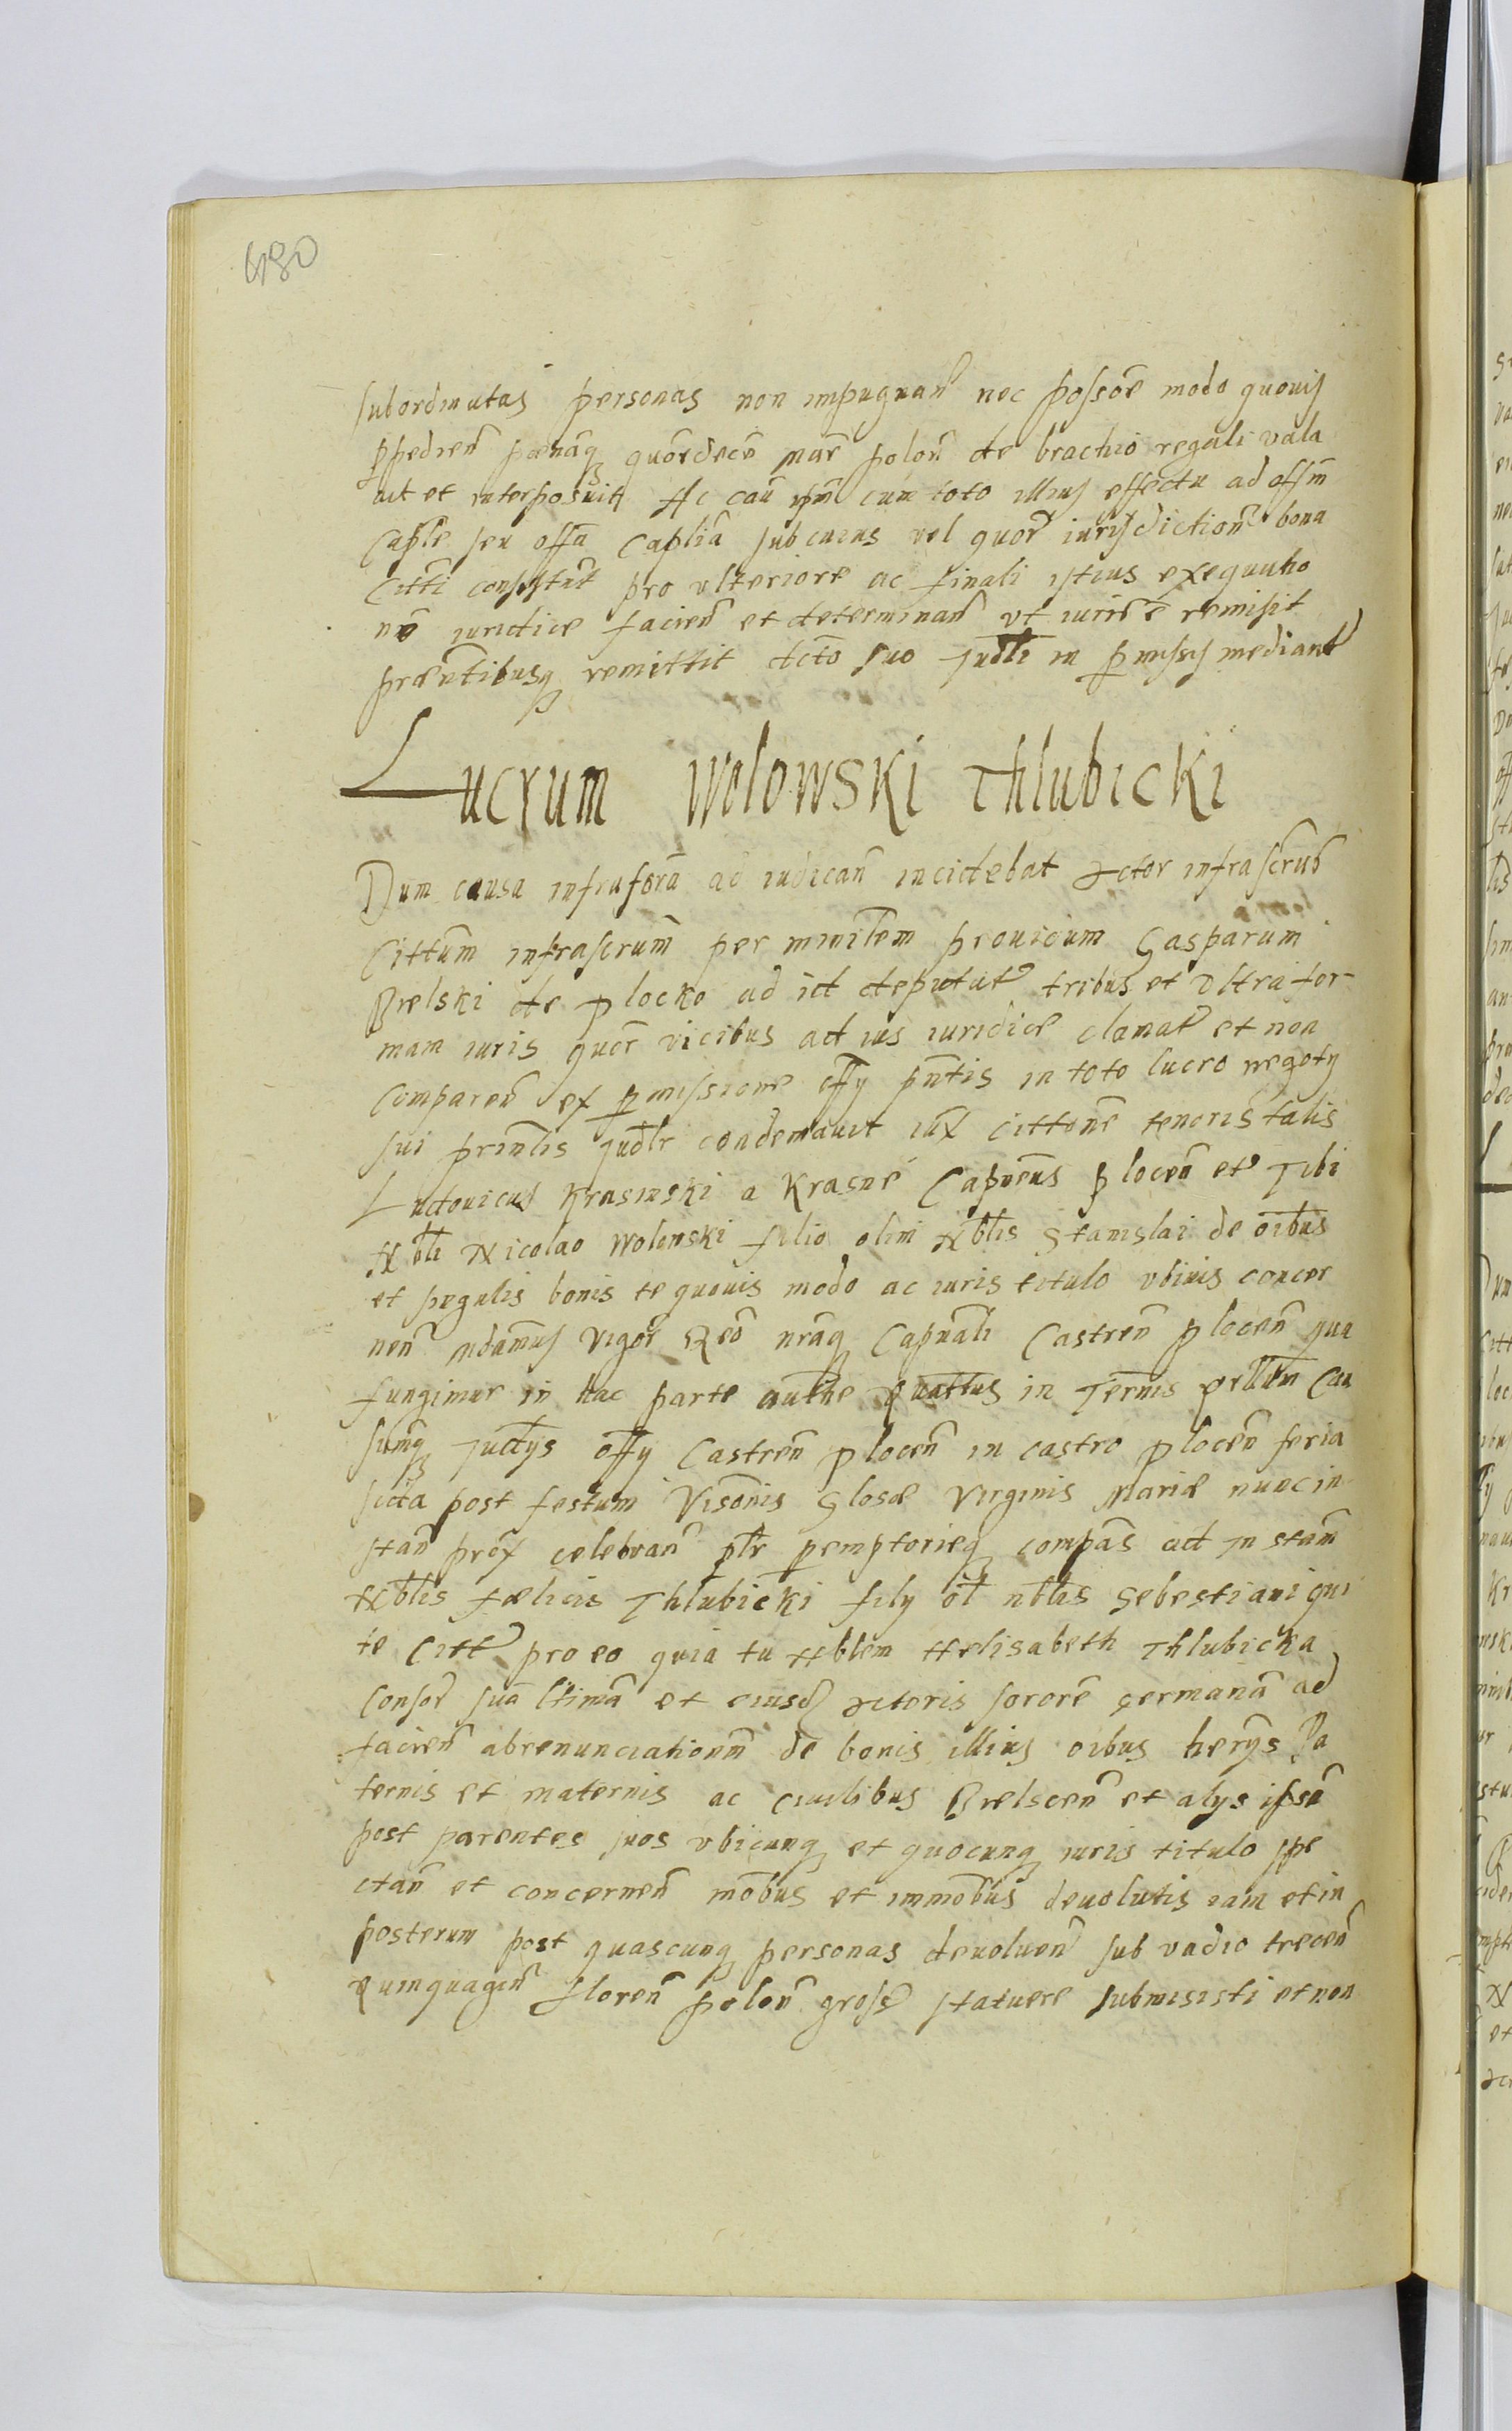 480
subordinatas personas non impugnan nec possoe modo quouis
ppedien poenaq quordece mar polon de brachio regali valla
uit et interposuit Ac cau ipm cum toto illius effectu ad offm
Caple seu offa Caplia sub cuius vel quor iurisdictione bona
Citti consistut pro vlteriore ac finali istius exequutio
ne iuridice facien et determinan vt iuris e remisit
præntibusq remittit dcto suo Judli in pmissis mediante
Lucrum Wolowski Thlubicki
Dum causa infrascra ad iudican incidebat Actor infrascrus
Cittum infrascrum per minlem prouidum Gasparum
Bielski de Plocko ad id deputat tribus et vltra for-
mam iuris quor vicibus ad ius iuridice clamat et non
comparen ex pmissione offy pntis in toto lucro negoty
sui prinlis Judlr condemnauit iux cittone tenoris talis
Ludouicus Krasinski a Krasne Capneus Plocen et Tibi
Nbli Nicolao Wolowski filio olim Nblis Stanislai de oibus
et singulis bonis te quouis modo ac iuris titulo vbiuis concer
nen mdamus vigor Reo nraq Capnali Castren Plocen qua
fungimur in hac parte authe Quattus in Ternis prllum Cau
sumq Judys offy Castren Plocen in castro Plocen feria
scda post festum Visonis Glosæ Virginis Mariæ nunc in
stan prox celebran plr pemptorieq compas ad Instam
Nblis Fælicis Thlubicki fily ol nblis Sebestiani qui
te Citt pro eo quia tu Nblem Helisabeth Thlubicka
Consor sua ltima et eiusd Actoris sorore germana ad
facien abrenunciationem de bonis illius oibus herys Pa
ternis et maternis ac Ciuilibus Bielscen et alys ipsa
post parentes suos vbicunq et quocunq iuris titulo spe
ctan et concernen mobus et immobus deuolutis iam et in
posterum post quascunq personas deuoluen sub vadio trecen
quinquagin floren polon gross statuere submisisti et non